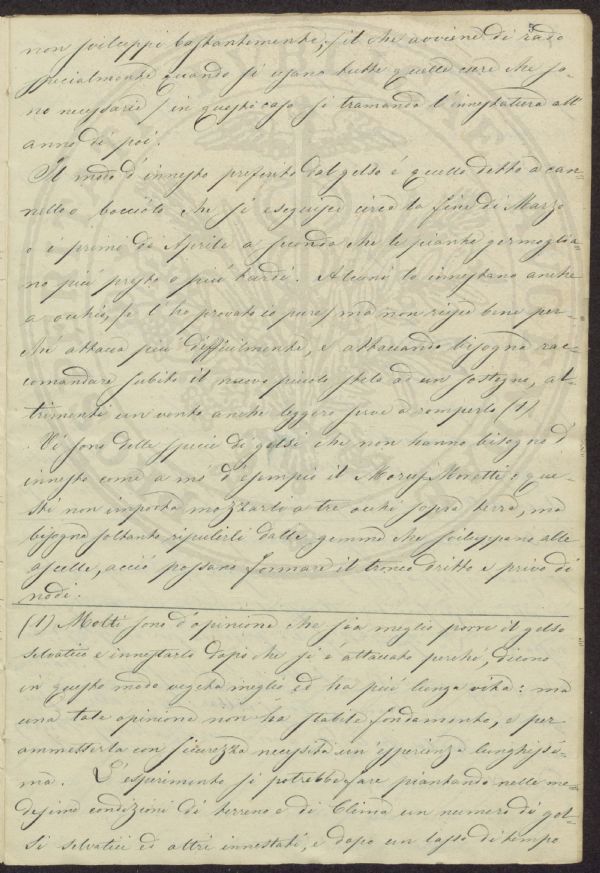 5
non sviluppi bastantemente, (il che avviene di rado
specialmente quando si usano tutte quelle cure che so-
no necessarie) in questo caso si tramanda l'innestatura all'
anno di poi.
Il modo d'innesto preferito dal gelso é quello detto a can-
nello o bocciolo che si eseguisce circa la fine di Marzo
o i primi di Aprile a seconda che le piante germoglia-
no più presto o più tardi. Alcuni lo innestano anche
a occhio, (e l'ho provato io pure) ma non riesce bene per-
ché attacca più difficilmente, e attaccando bisogna rac-
comandare subito il nuovo piccolo stelo ad un sostegno, al-
trimenti un vento anche leggero serve a romperlo (1).
Vi sono delle specie di gelsi che non hanno bisogno d'
innesto come a mó d'esempio il Morus Moretti; que-
sti non importa mozzarli a tre occhi sopra terra, ma
bisogna soltanto ripulirli dalle gemme che sviluppano alle
ascelle, acció possano formare il tronco dritto e privo di
nodi.
(1) Molti sono d'opinione che sia meglio porre il gelso
selvatico e innestarlo dopo che si é attaccato perché, dicono
in questo modo vegeta meglio ed ha più lunga vita: ma
una tale opinione non ha stabile fondamento, e per
ammetterla con sicurezza necessita un'esperienza lunghissi-
ma. L'esperimento si potrebbe fare piantando nelle me-
desime condizioni di terreno e di Clima un numero di gel-
si selvatici ed altri innestati, e dopo un lasso di tempo